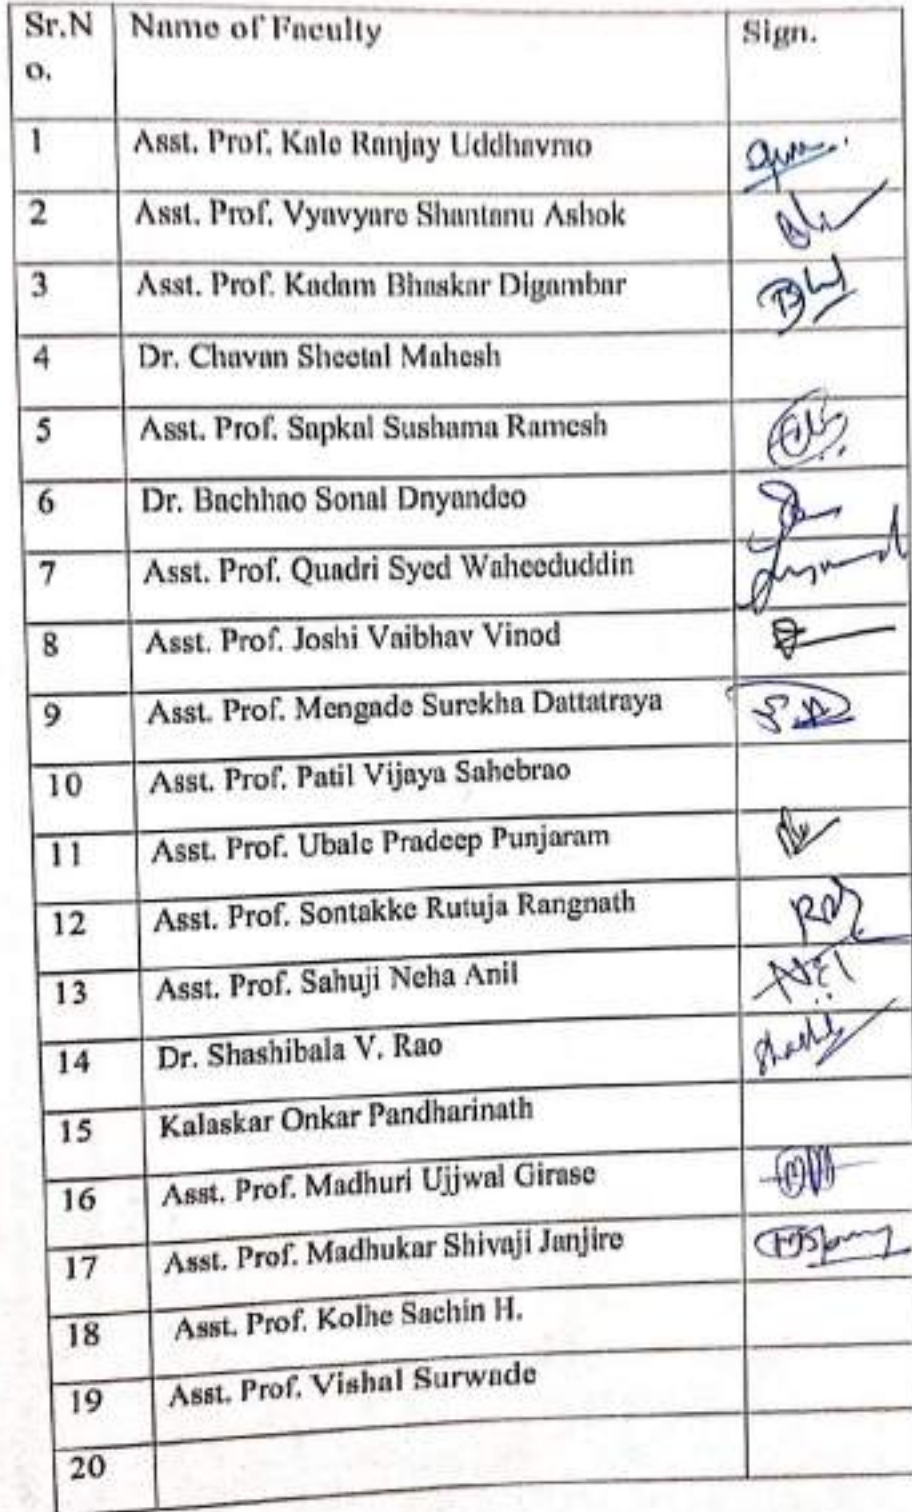 Sr.N Name of Faculty Sign.
o.
1 Asst. Prof. Kale Ranjay Uddhavrao
2 Asst. Prof. Vyavyare Shantanu Ashok
3 Asst. Prof. Kadam Bhaskar Digambar
4 Dr. Chavan Sheetal Mahesh
5 Asst. Prof. Sapkal Sushama Ramesh
6 Dr. Bachhao Sonal Dnyandeo
7 Asst. Prof. Quadri Syed Waheeduddin
8 Asst. Prof. Joshi Vaibhav Vinod
9 Asst. Prof. Mengade Surekha Dattatraya
10 Asst. Prof. Patil Vijaya Sahebrao
11 Asst. Prof. Ubale Pradeep Punjaram
12 Asst. Prof. Sontakke Rutuja Rangnath
13 Asst. Prof. Sahuji Neha Anil
14 Dr. Shashibala V. Rao
15 Kalaskar Onkar Pandharinath
16 Asst. Prof. Madhuri Ujjwal Girase
17 Asst. Prof. Madhukar Shivaji Janjire
18 Asst. Prof. Kolhe Sachin H.
19 Asst. Prof. Vishal Surwade
20